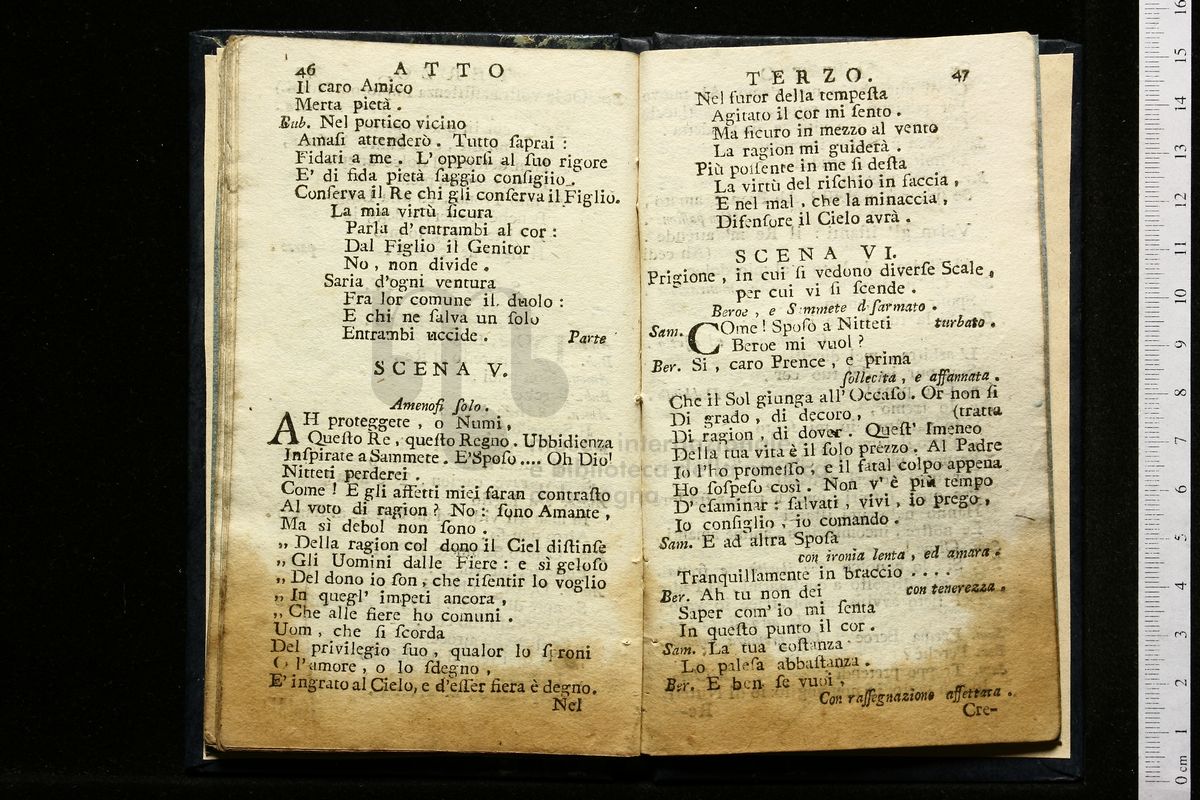 46 ATTO
Il caro Amico
Merta pietà .
Bub. Nel portico vicino
Amasi attenderò . Tutto saprai :
Fidati a me . L' opporsi al suo rigore
E' di fida pietà saggio consiglio .
Conserva il Re chi gli conserva il Figlio.
La mia virtù sicura
Parla d' entrambi al cor :
Dal Figlio il Genitor
No , non divide .
Saria d'ogni ventura
Fra lor comune il duolo :
E chi ne salva un solo
Entrambi uccide . Parte
SCENA V.
Amenofi solo .
AH proteggete , o Numi ,
Questo Re , questo Regno . Ubbidienza
Inspirate a Sammete . E' Sposo .... Oh Dio!
Nitteti perderei .
Come ! E gli affetti miei saran contrasto
Al voto di ragion ? No : sono Amante ,
Ma sì debol non sono .
„ Della ragion col dono il Ciel distinse
„ Gli Uomini dalle Fiere : e sì geloso
„ Del dono io son , che risentir lo voglio
„ In quegl' impeti ancora ,
„ Che alle fiere ho comuni .
Uom , che si scorda
Del privilegio suo , qualor lo sproni
O l'amore , o lo sdegno ,
E' ingrato al Cielo, e d'esser fiera è degno.
Nel
TERZO. 47
Nel furor della tempesta
Agitato il cor mi sento .
Ma sicuro in mezzo al vento
La ragion mi guiderà .
Più possente in me si desta
La virtù del rischio in faccia ,
E nel mal , che la minaccia ,
Difensore il Cielo avrà .
SCENA VI.
Prigione , in cui si vedono diverse Scale ,
per cui vi si scende .
Beroe , e Sammete disarmato .
Sam. COme ! Sposo a Nitteti turbato .
Beroe mi vuol ?
Ber. Sì , caro Prence , e prima
sollecita , e affannata .
Che il Sol giunga all' Occaso . Or non si
Di grado , di decoro , (tratta
Di ragion , di dover . Quest' Imeneo
Della tua vita è il solo prezzo . Al Padre
Io l'ho promesso ; e il fatal colpo appena
Ho sospeso così . Non v' è più tempo
D' esaminar : salvati , vivi , io prego ,
Io consiglio , io comando .
Sam. E ad altra Sposa
con ironia lenta , ed amara .
Tranquillamente in braccio ....
Ber. Ah tu non dei con tenerezza .
Saper com' io mi senta
In questo punto il cor .
Sam. La tua costanza
Lo palesa abbastanza .
Ber. E ben se vuoi ,
Con rassegnazione affettata .
Cre-